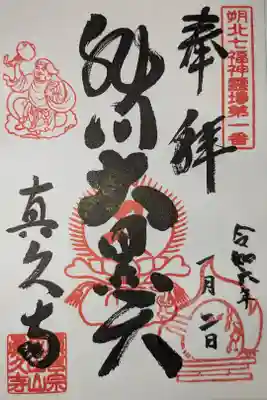 朔北七福神霊場第一番
奉拝
令和六年
一月二日
大黒天
真久寺